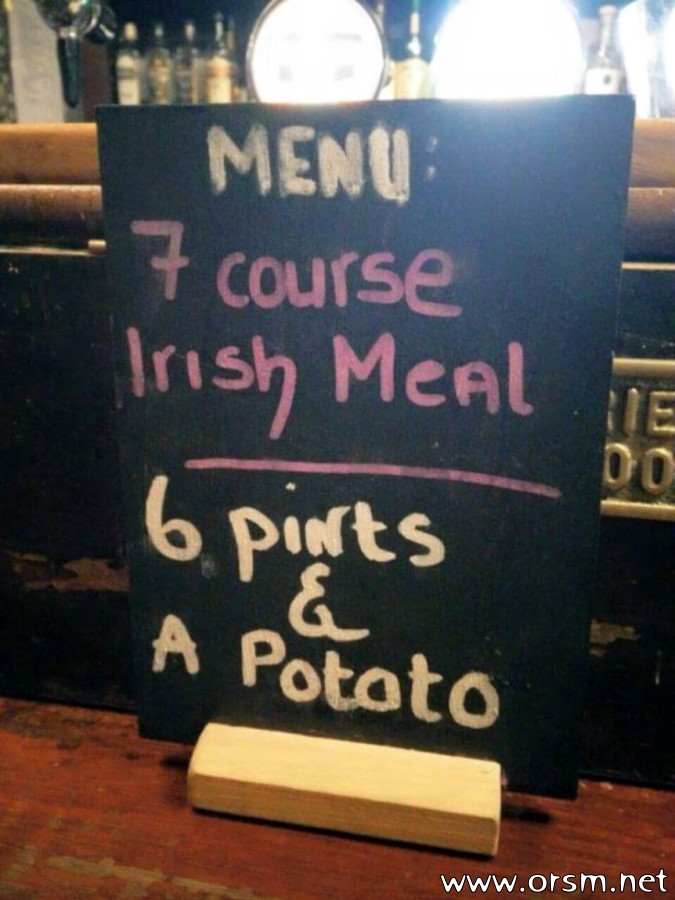 MENU:
7 course
Irish Meal
6 pints
&
A Potato
www.orsm.net